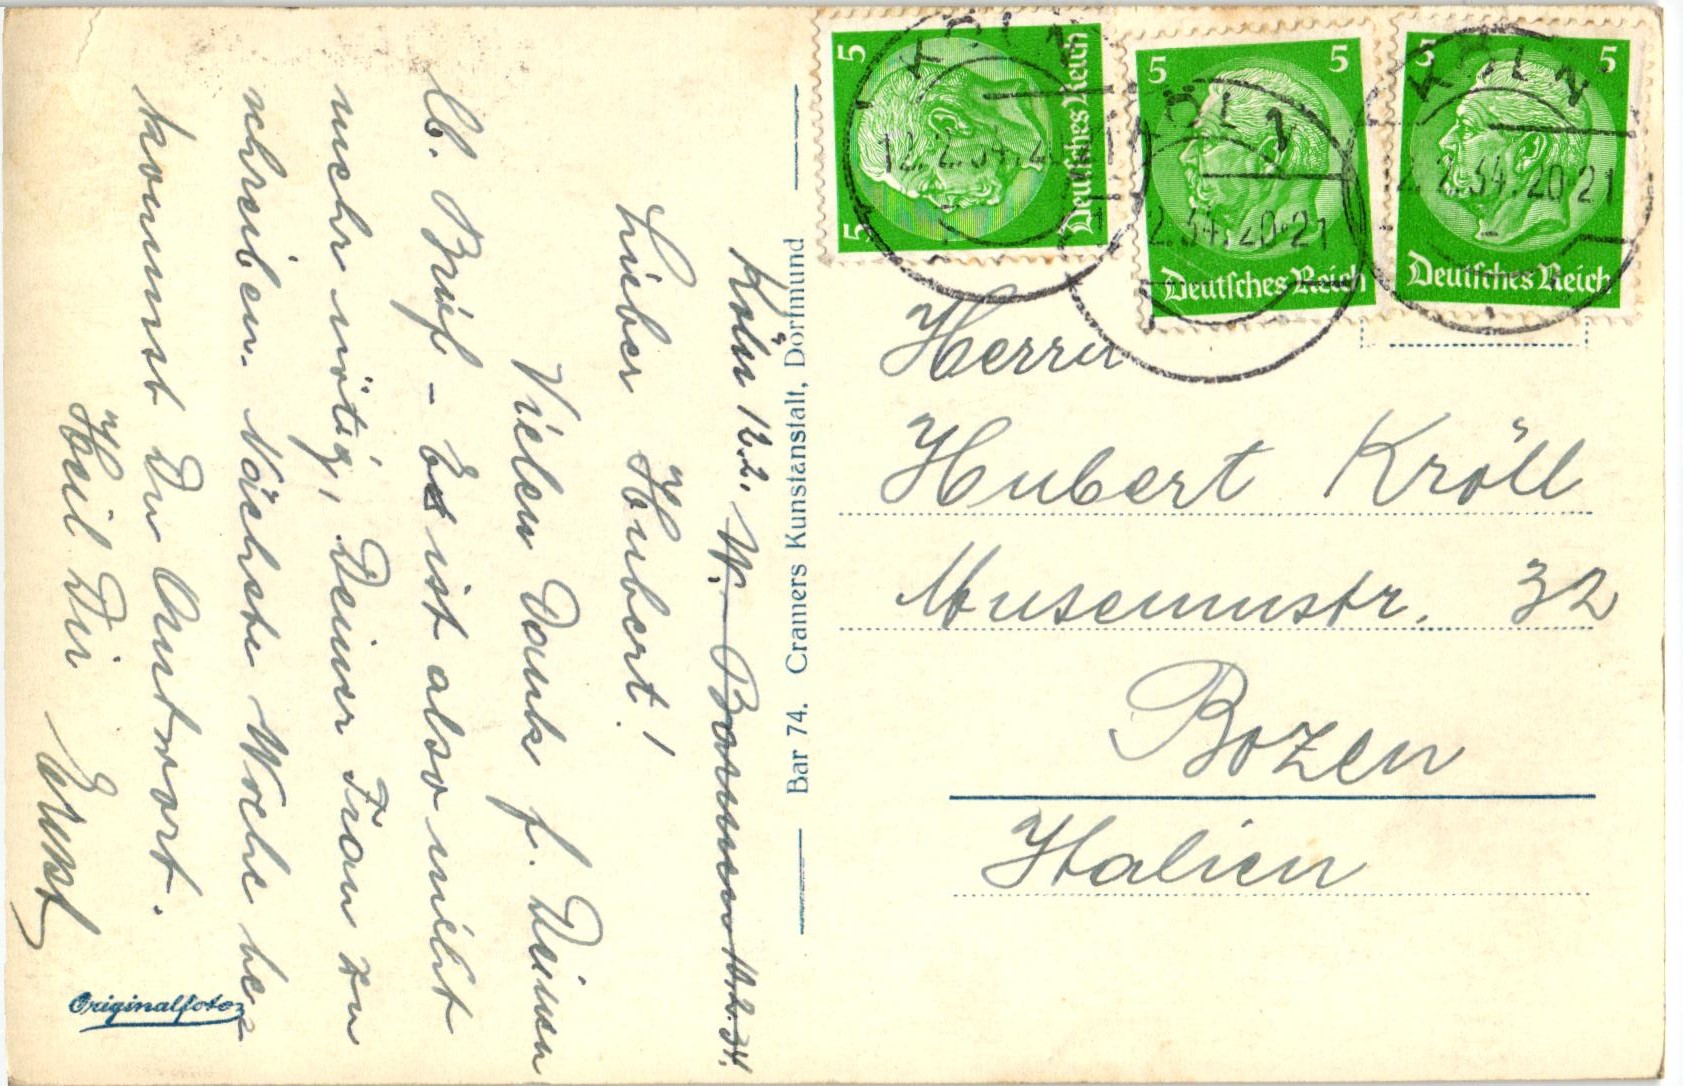 Köln 12.2. W.-Barmen 10.2.34.
Lieber Hubert!
Vielen Dank f. Deinen
lb. Brief - Es ist also nicht
mehr nötig, Deiner Frau zu
schreiben. Nächste Woche be=
kommst Du Antwort.
Heil Dir
Ernst
Originalfoto
Bar 74. Cramers Kunstanstalt, Dortmund
5 5
Deutsches Reich
5 5
Deutsches Reich
5 5
Deutsches Reich
KÖLN
12.2.34.
KÖLN
2.34.20-21
KÖLN
2.2.34.20-21
Herrn
Hubert Kröll
Museumstr. 32
Bozen
Italien